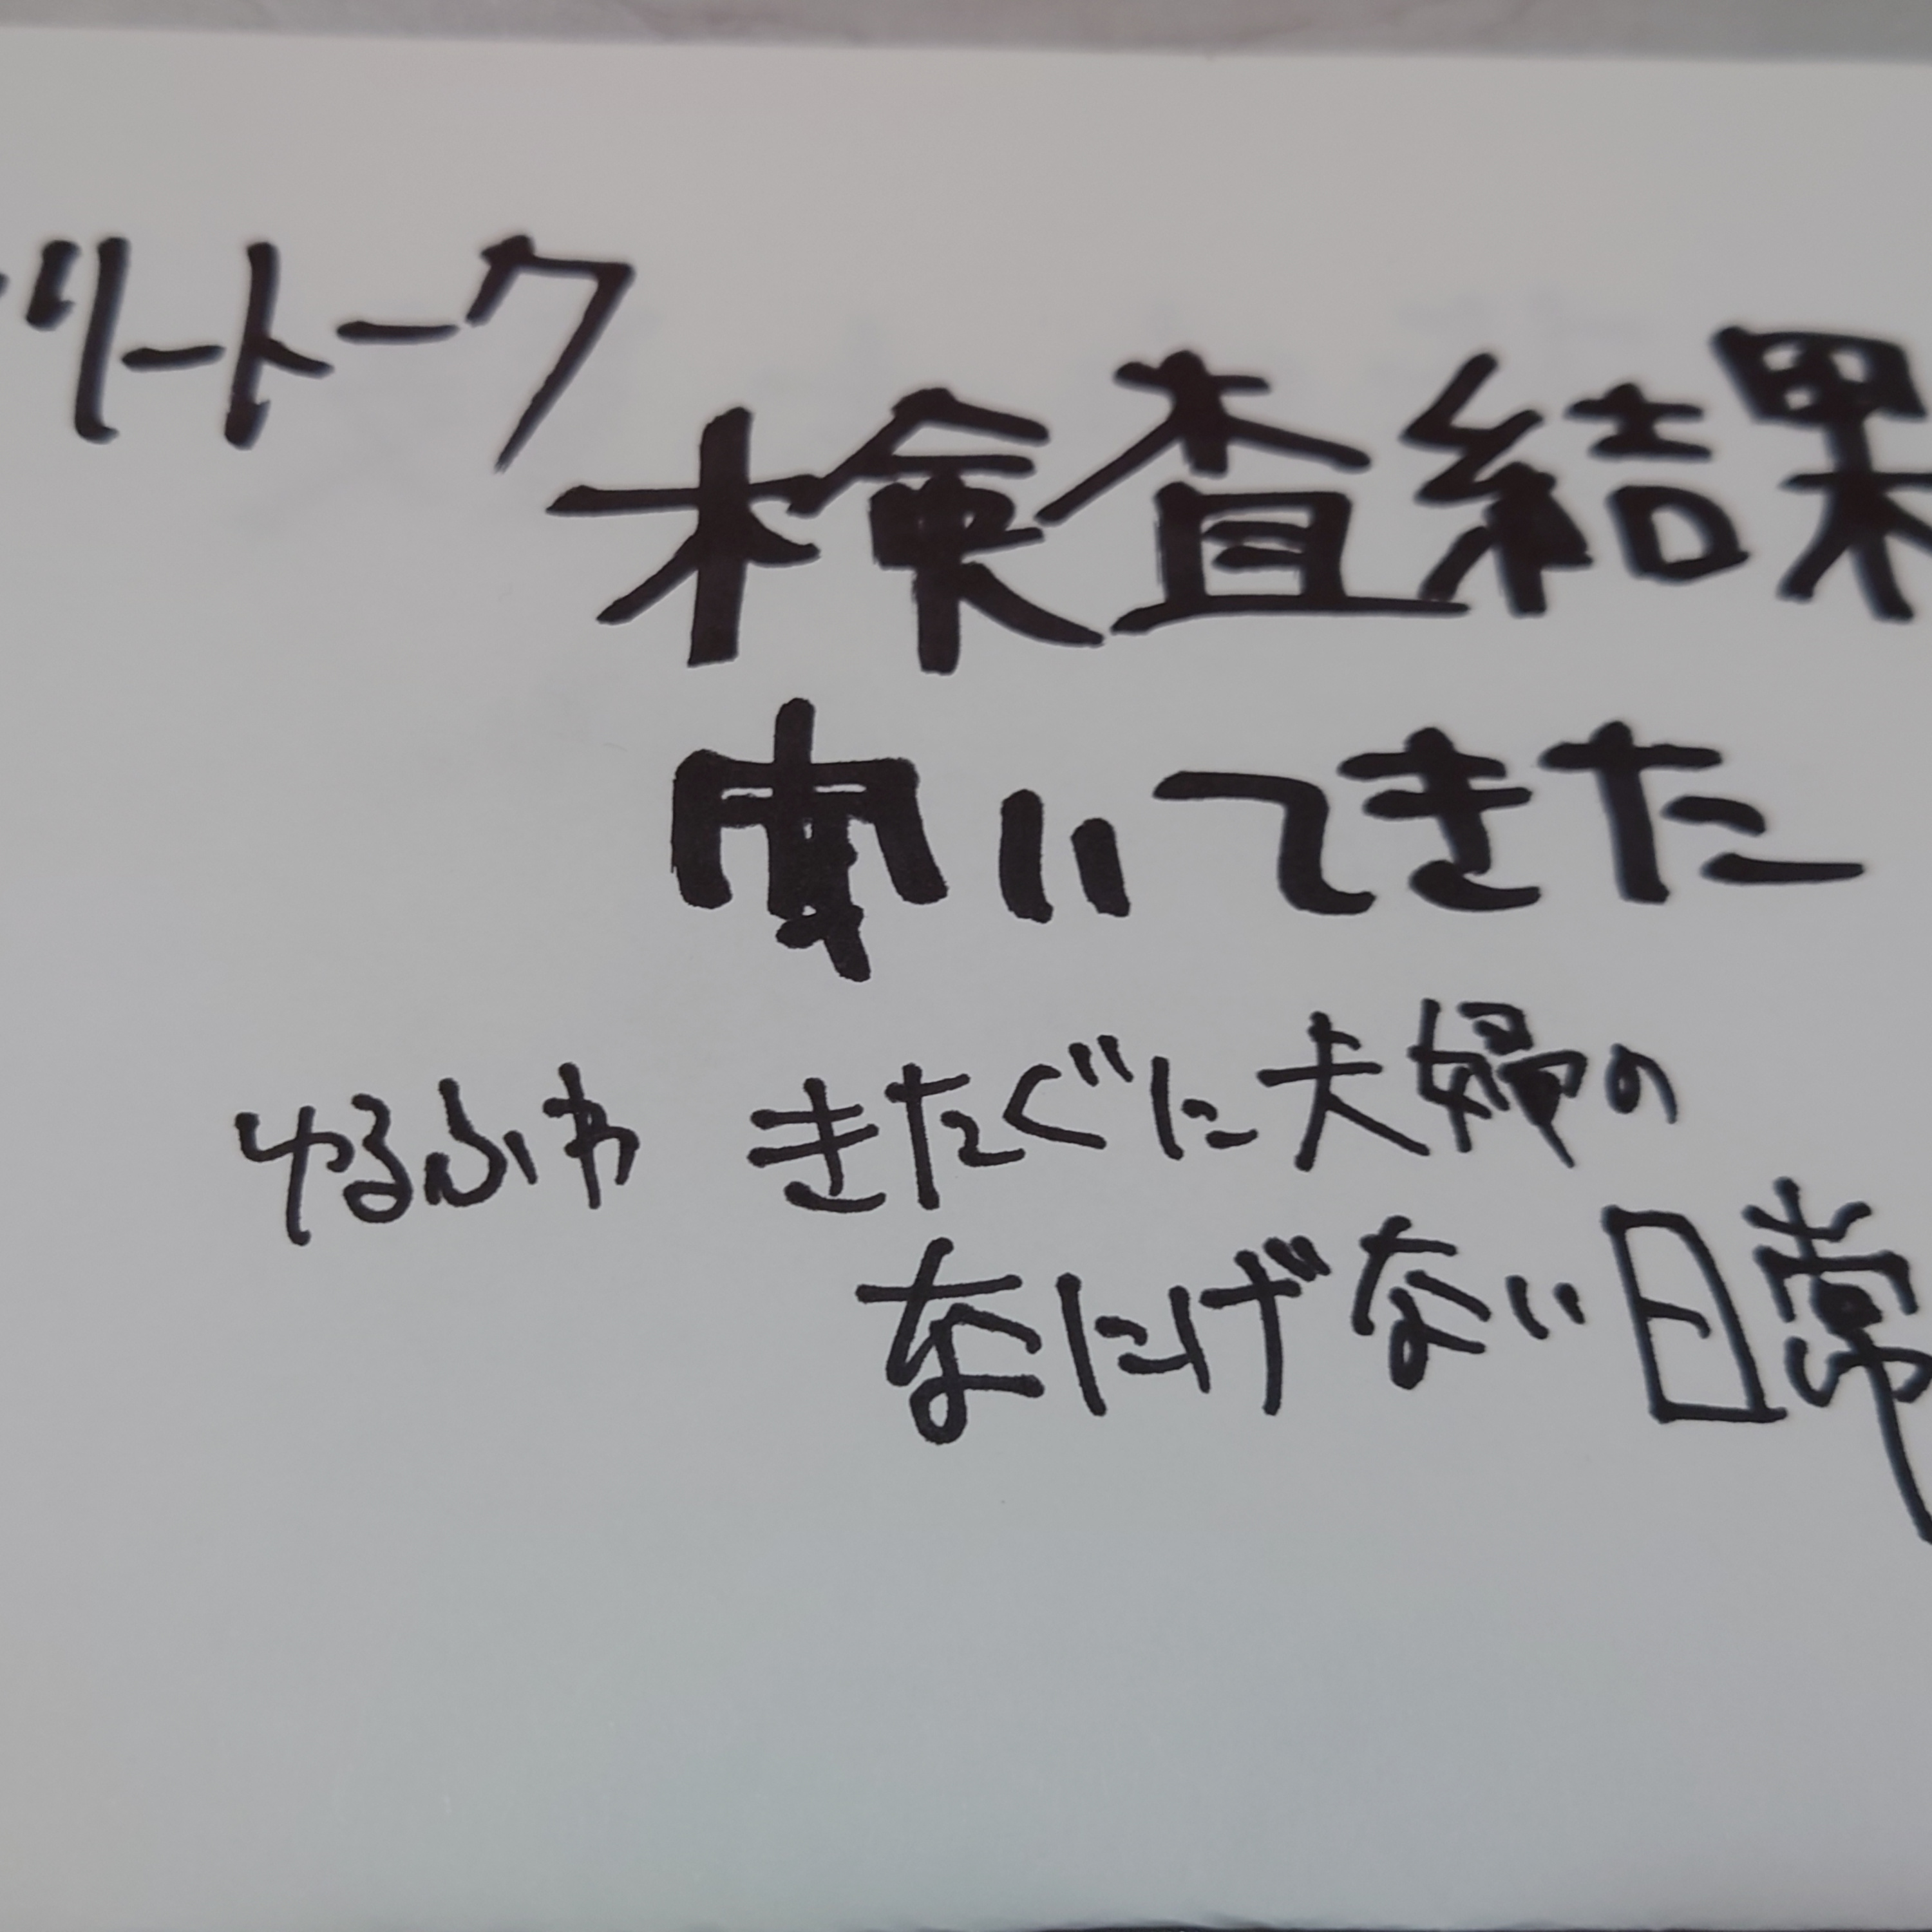 リートーク
検査結果
聞いてきた
ゆるふわ きたぐに夫婦の
なにげない日常